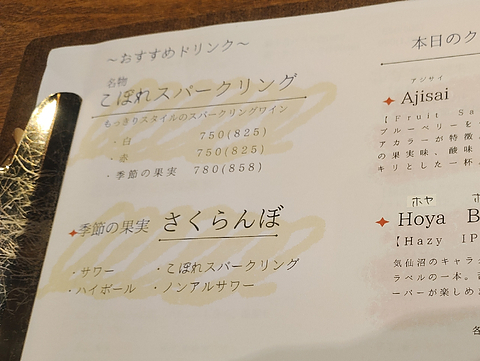 ～おすすめドリンク～
名物
こぼれスパークリング
もっきりスタイルのスパークリングワイン
・白 750(825)
・赤 750(825)
・季節の果実 780(858)
季節の果実 さくらんぼ
・サワー ・こぼれスパークリング
・ハイボール ・ノンアルサワー
本日のク
アジサイ
Ajisai
【Fruit Sa
ブルーベリーを
アカラーが特徴。
の果実味。酸味
キリとした一杯。
ホヤ
Hoya B
【Hazy IP
気仙沼のキャラ
ラベルの一本。
ーパーが楽しめ
各